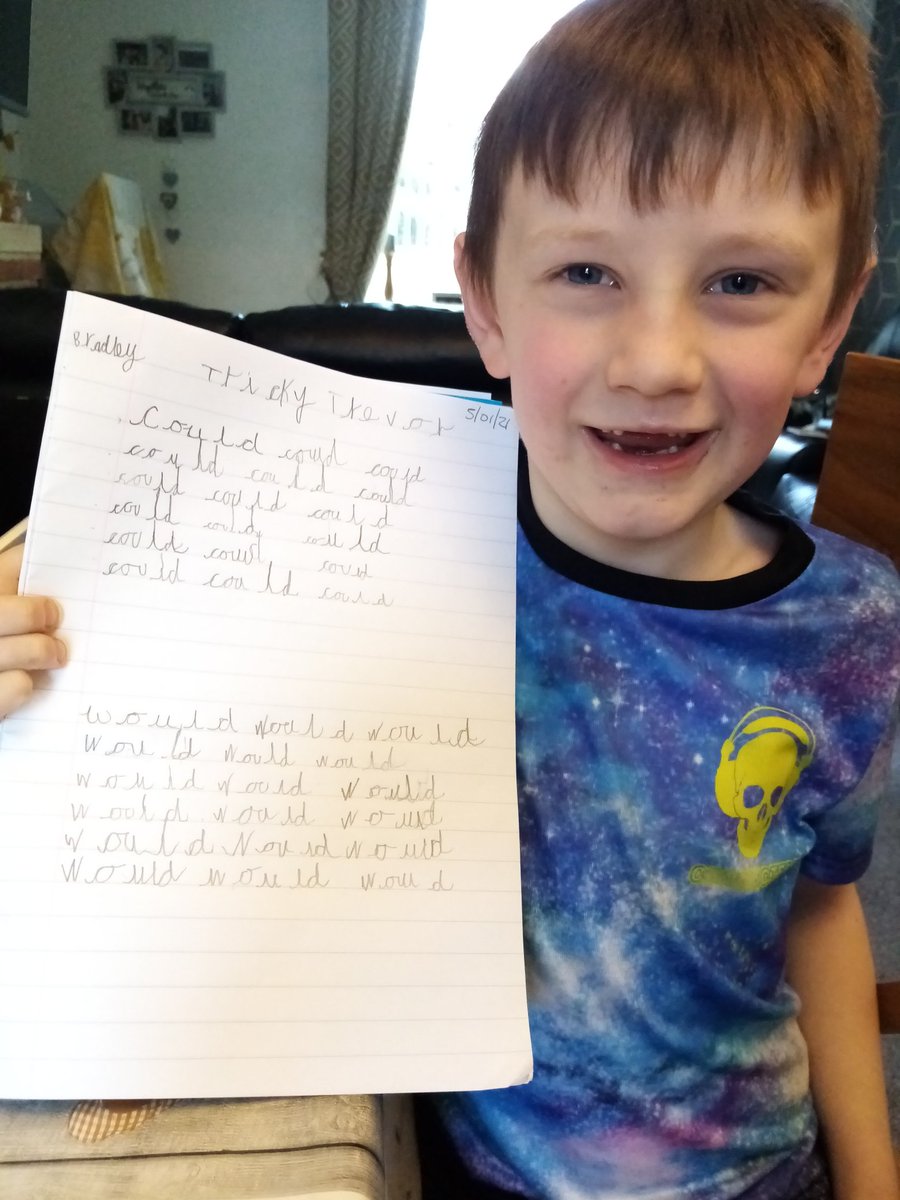 Bradley
Tricky Trevor 5/01/21
Could could could
could could could
could could could
could could could
could could could
could could could
would would would
would would would
would would would
would would would
would would would
would would would